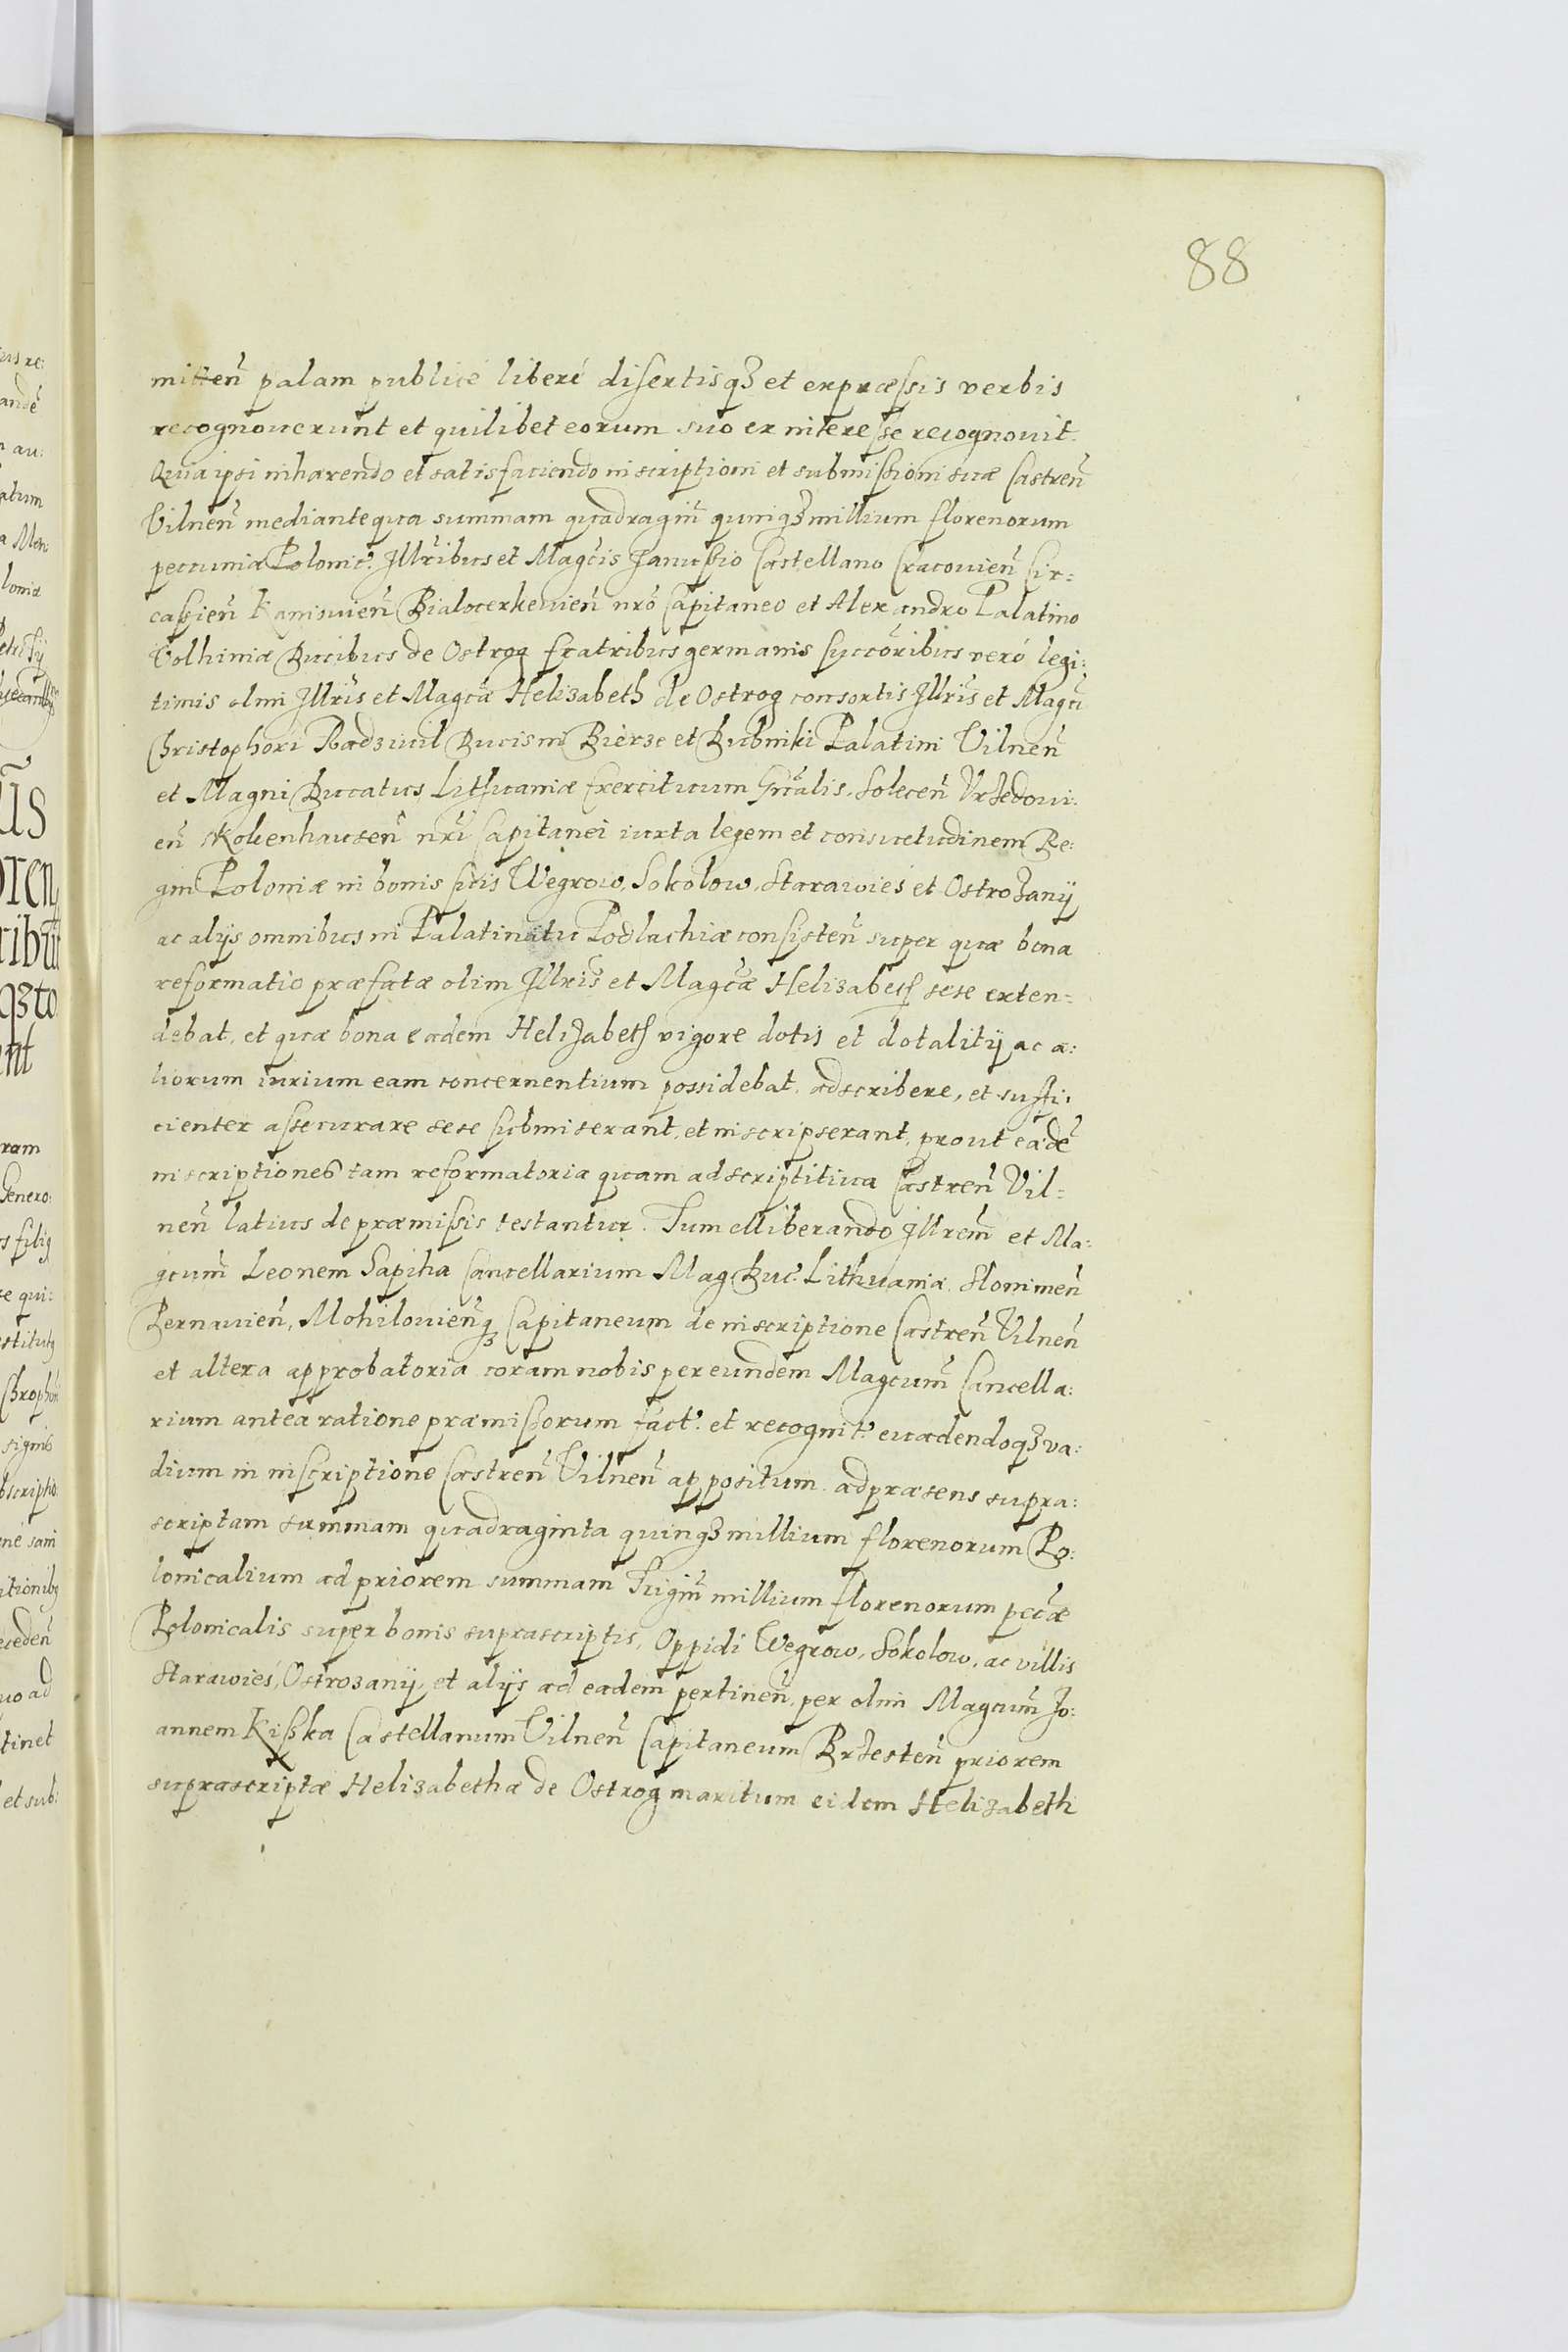 88
mitten̄ palam publice liberé disertisqꝫ et expræssis verbis
recognouerunt et quilibet eorum suo ex interesse recognouit.
Quia ipsi inhærendo et satisfaciendo inscriptioni et submissioni suæ Castren̄
Vilnen̄ mediante qua summam quadragin̄ quinqꝫ millium florenorum
pecuniæ Polonic. Illr̄ibus et Magc̄is Janussio Castellano Cracouien̄ Cir:
cassien̄ Kaniouien̄ Bialocerkeuien̄ nr̄o Capitaneo et Alexandro Palatino
Volhiniæ Ducibus de Ostrog fratribus germanis succōribus veró legi:
timis olim Illr̄is et Magcǣ Helizabeth de Ostrog consortis Illr̄is et Magci
Christophori Radziuil Ducis in Bierze et Dubinki Palatini Vilnen̄
et Magni Ducatus Lithuaniæ Exercituum Gn̄alis. Solecen̄ Vrzedoui:
en̄ Kokenhausen̄ nr̄i Capitanei iuxta legem et consuetudinem Re:
gni Poloniæ in bonis suis Wegrow, Sokolow, Starawies et Ostrozany
ac alijs omnibus in Palatinatu Podlachiæ consisten̄ super quæ bona
reformatio præfatæ olim Illris̄ et Magcǣ Helizabeth sese exten:
debat, et quæ bona eadem Helizabeth vigore dotis et dotalitij ac a:
liorum iurium eam concernentium possidebat. adscribere, et suffi:
cienter assecurare sese submiserant, et inscripserant, prout eadē
inscriptiones tam reformatoria quam adscriptitiua Castren̄ Vil:
nen̄ latius de præmissis testantur. Tum elliberando Illrem̄ et Ma:
gcum̄ Leonem Sapiha Cancellarium Mag. Duc. Lithuaniæ Slonimen̄
Pernauien̄, Mohilouien̄qꝫ Capitaneum de inscriptione Castren̄ Vilnen̄
et altera approbatoria coram nobis per eundem Magcum̄ Cancella:
rium antea ratione præmissorum fact. et recognit. euadendoqꝫ va:
dium in inscriptione Castren̄ Vilnen̄ appositum. ad præsens supra:
scriptam summam quadraginta quinqꝫ millium florenorum Po:
lonicalium ad priorem summam Trigin̄ millium florenorum pccǣ
Polonicalis super bonis suprascriptis, Oppidi Wegrow, Sokolow, ac villis
Starawies, Ostrozany et alijs ad eadem pertinen̄. per olim Magcum̄ Jo:
annem Kiszka Castellanum Vilnen̄ Capitaneum Brzesten̄ priorem
suprascriptæ Helizabethæ de Ostrog maritum eidem Helizabeth